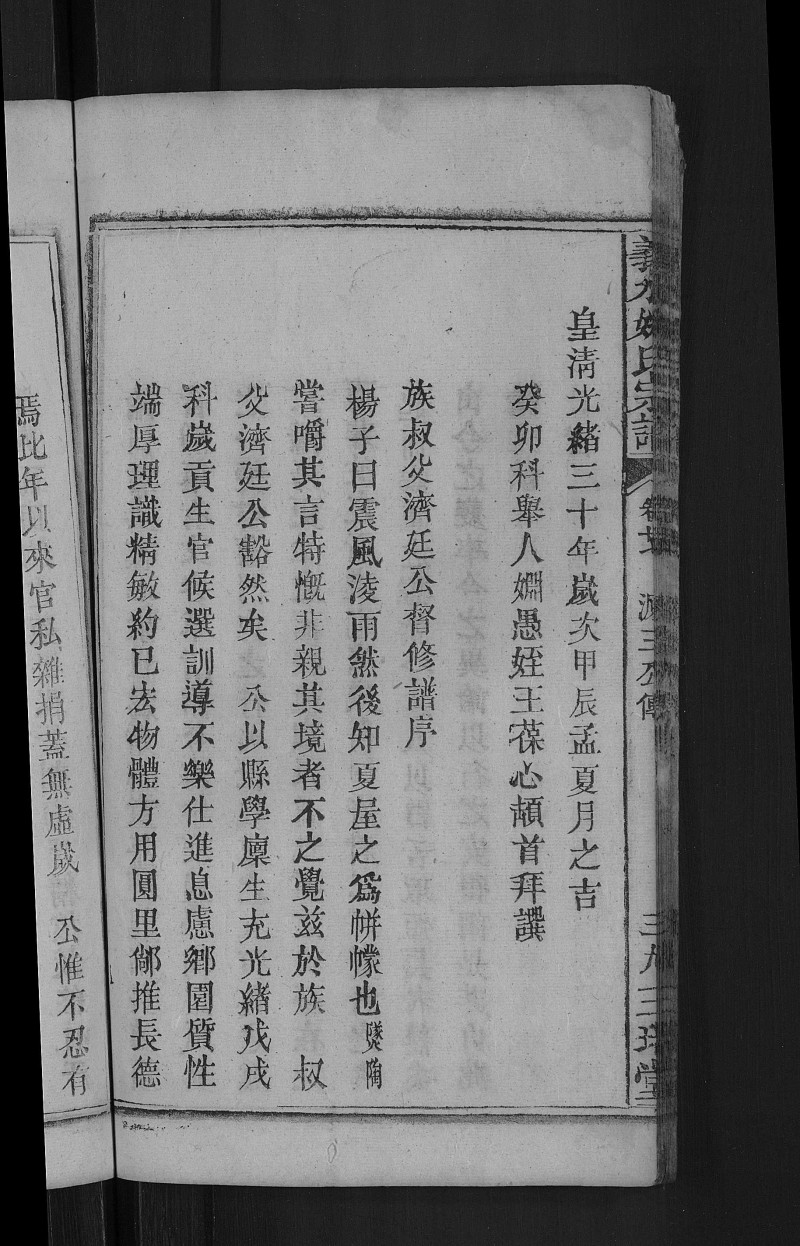 義水姚氏宗譜 卷廿 派三公傳 三九三瑞堂
皇清光緒三十年歲次甲辰孟夏月之吉
癸卯科舉人姻愚姪王葆心頓首拜譔
族叔父濟廷公督修譜序
楊子曰震風淩雨然後知夏屋之爲帡幪也墜陶
嘗嚼其言特慨非親其境者不之覺兹於族 叔
父濟廷公豁然矣 公以縣學廩生充光緒戊戌
科歲貢生官候選訓導不樂仕進息慮鄉園質性
端厚理識精敏約已宏物體方用圓里鄰推長德
焉比年以來官私雜捐蓋無虛歲 公惟不忍有